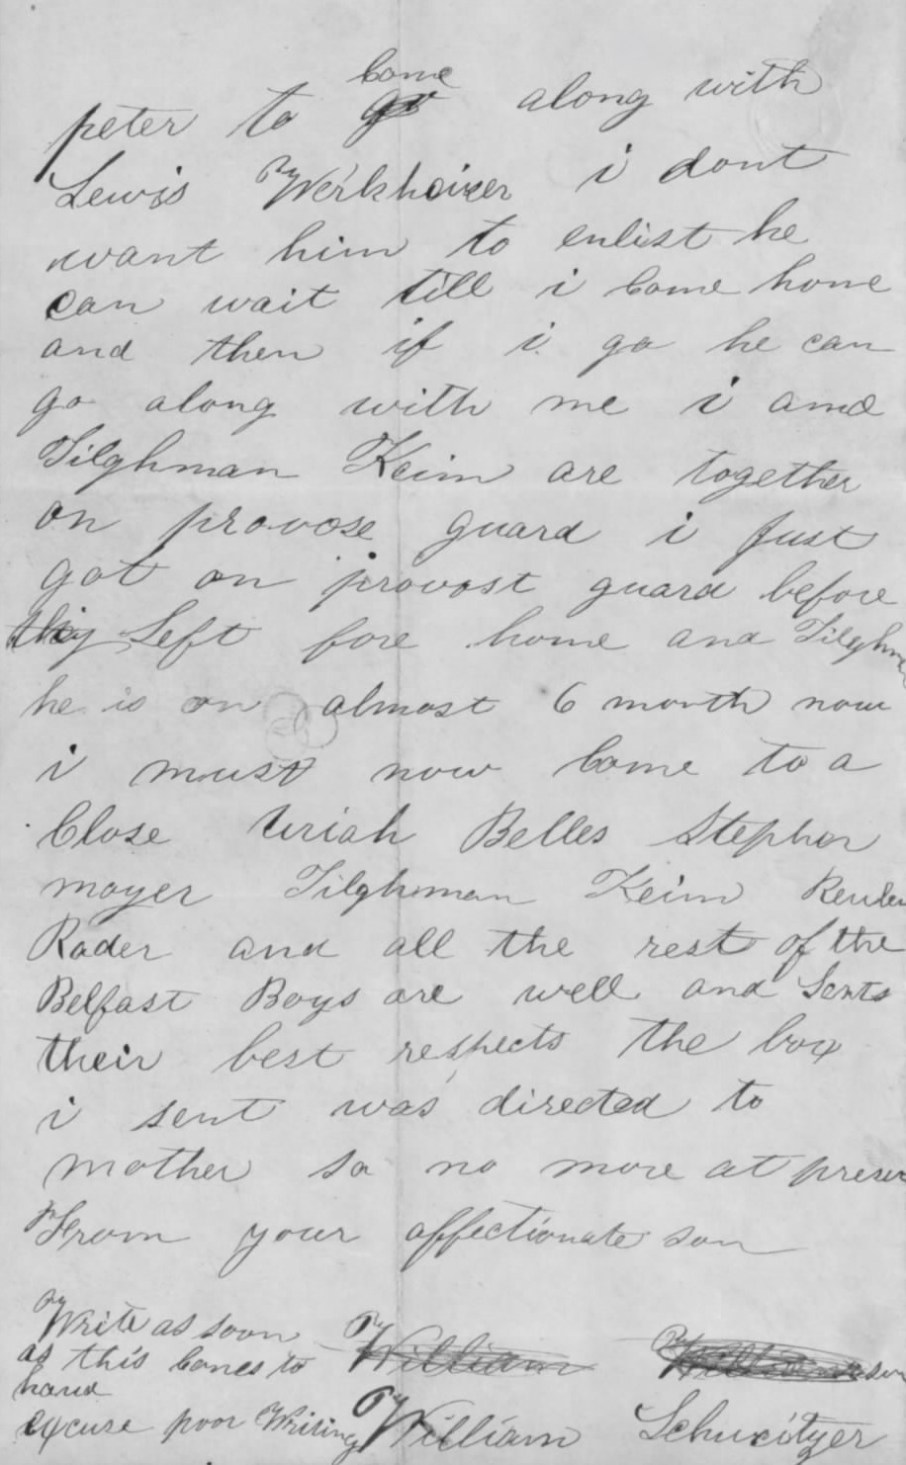 come
peter to go along with
Lewis Werkheiser i dont
want him to enlist he
can wait till i come home
and then if i go he can
go along with me i and
Tilghman Keim are together
on provose guard i just
got on provost guard before
they Left fore home and Tilghman
he is on almost 6 month now
i must now come to a
Close Uriah Belles Stephen
moyer Tilghman Keim Reuben
Rader and all the rest of the
Belfast Boys are well and Sents
their best respects the box
i sent was directed to
mother so no more at present
From your affectionate son
Write as soon
as this comes to William
hand
excuse poor Writing William Schweitzer